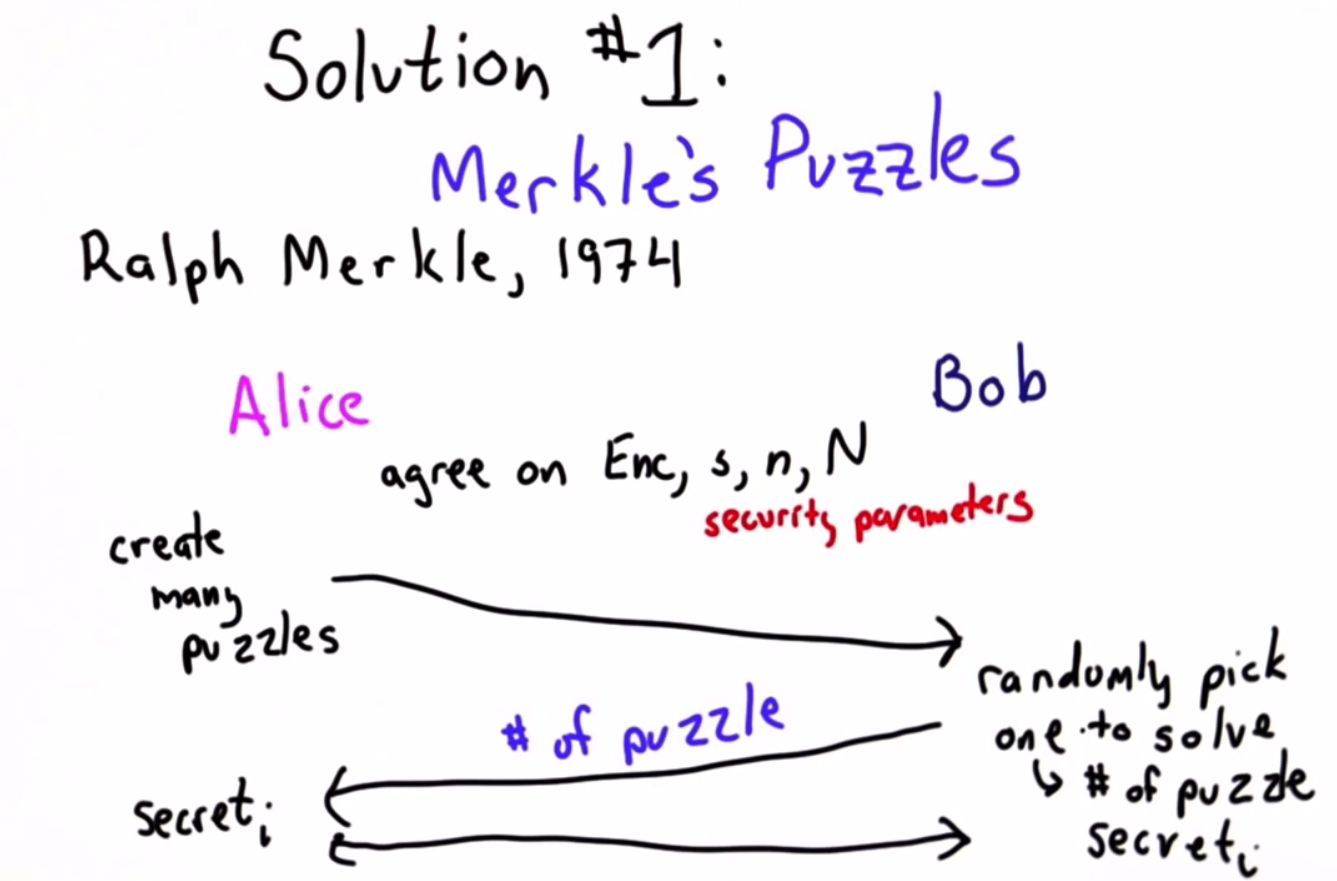 Solution #1:
Merkle's Puzzles
Ralph Merkle, 1974
Alice
Bob
agree on Enc, s, n, N
security parameters
create
many
puzzles
randomly pick
one to solve
↳ # of puzzle
secretᵢ
# of puzzle
secretᵢ